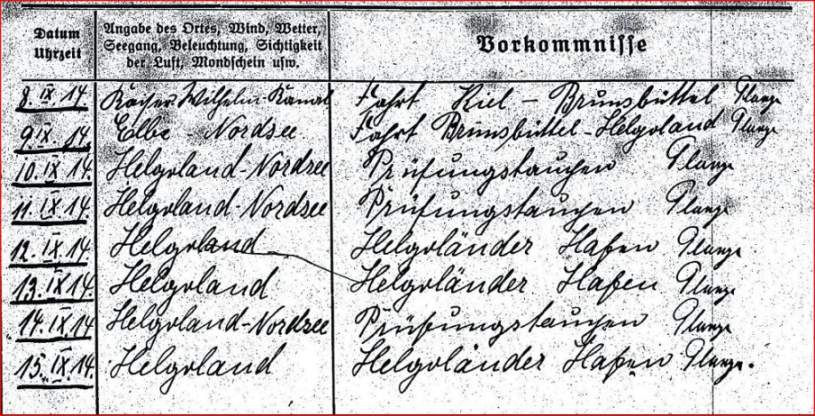 Datum Uhrzeit
Angabe des Ortes, Wind, Wetter, Seegang, Beleuchtung, Sichtigkeit der Luft, Mondschein usw.
Vorkommnisse
8. IX 14. Kaiser Wilhelm-Kanal Fahrt Kiel – Brunsbüttel
9. IX. 14 Elbe - Nordsee. Fahrt Brunsbüttel-Helgoland
10. IX. 14 Helgoland-Nordsee Prüfungstauchen
11. IX. 14 Helgoland-Nordsee Prüfungstauchen
12. IX. 14. Helgoland Helgoländer Hafen
13. IX. 14. Helgoland Helgoländer Hafen
14. IX. 14 Helgoland-Nordsee Prüfungstauchen
15. IX. 14. Helgoland Helgoländer Hafen